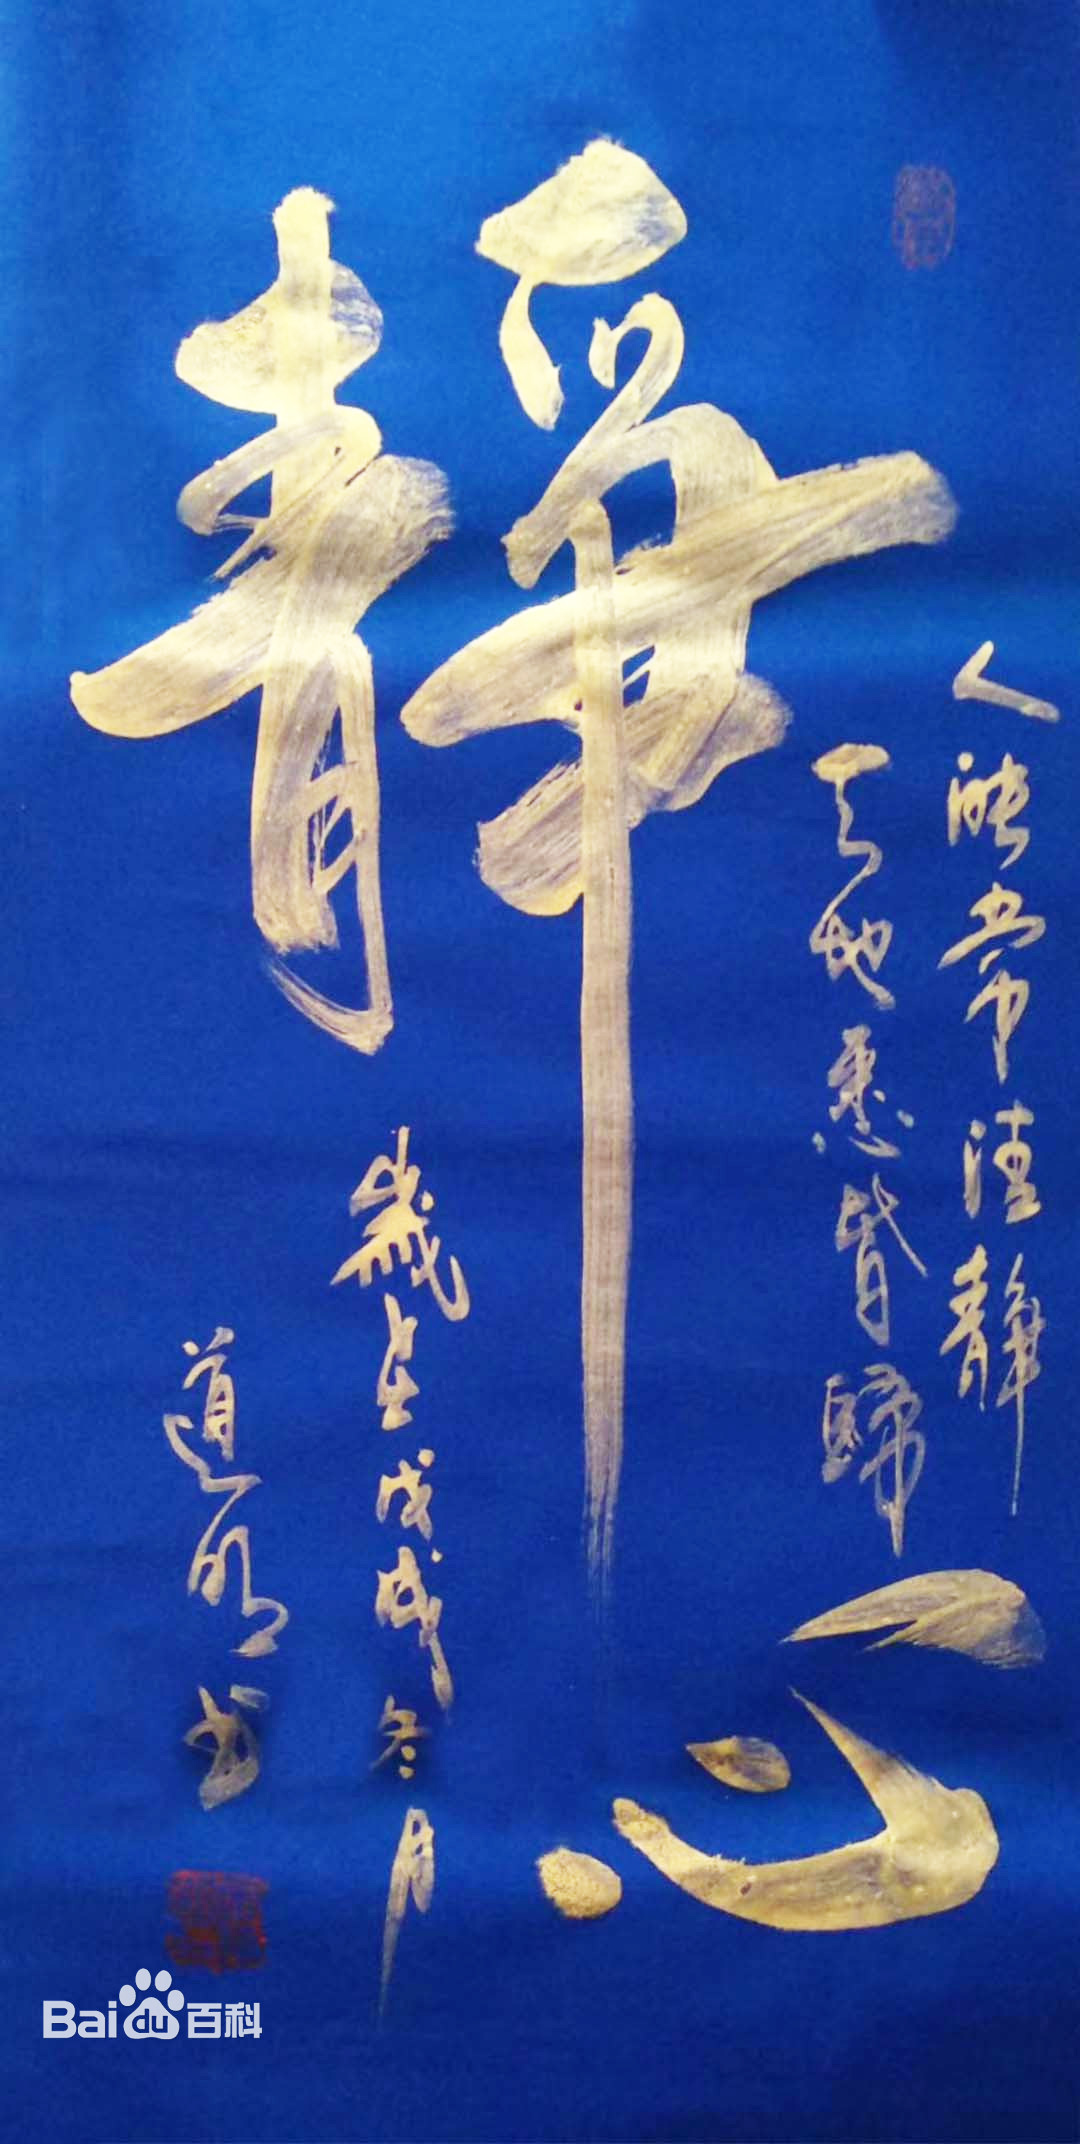 靜心
人能常清靜
天地悉皆歸
歲在戊戌冬月
道明书
Baidu百科